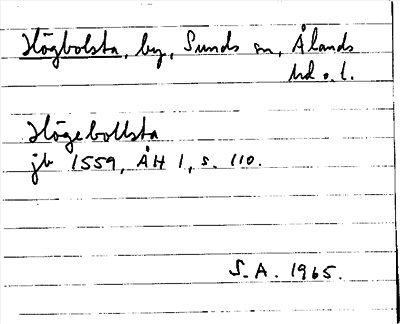 Högbolsta, by, Sunds sn, Ålands
hd o. l.
Högebollsta
jb 1559, ÅH 1, s. 110.
S.A. 1965.